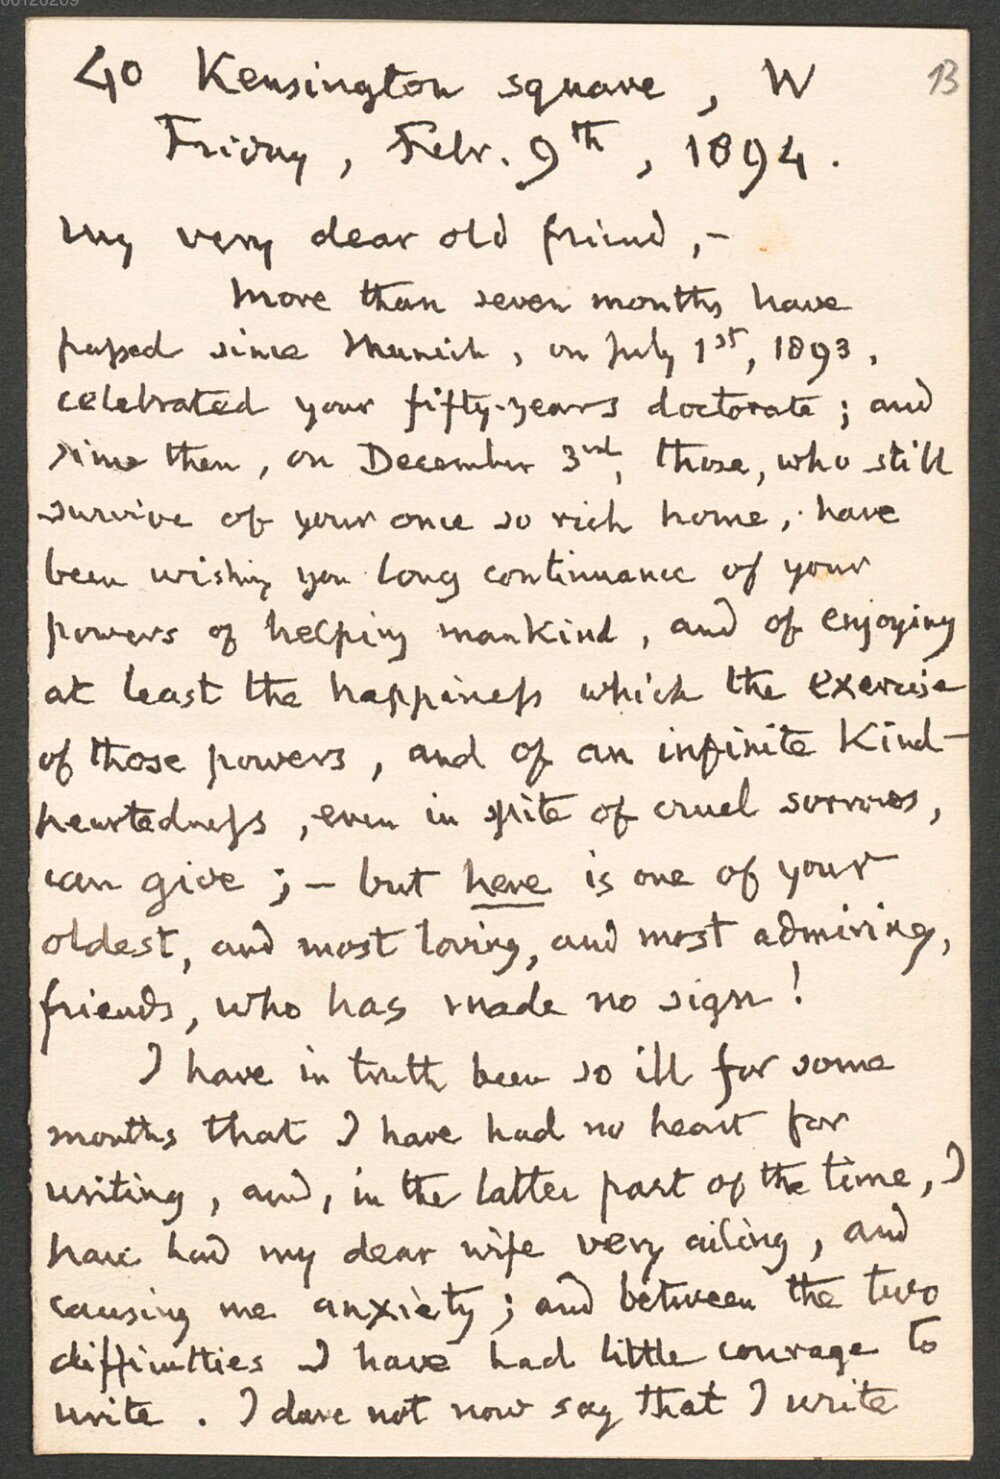 00126209
40 Kensington square, W
13
Friday, Febr. 9th, 1894.
My very dear old friend,–
More than seven months have
passed since Munich, on July 1st, 1893,
celebrated your fifty-years doctorate; and
since then, on December 3rd, those, who still
survive of your once so rich home, have
been wishing you long continuance of your
powers of helping mankind, and of enjoying
at least the happiness which the exercise
of those powers, and of an infinite kind-
heartedness, even in spite of cruel sorrows,
can give; – but here is one of your
oldest, and most loving, and most admiring,
friends, who has made no sign!
I have in truth been so ill for some
months that I have had no heart for
writing, and, in the latter part of the time, I
have had my dear wife very ailing, and
causing me anxiety; and between the two
difficulties I have had little courage to
write. I dare not now say that I write